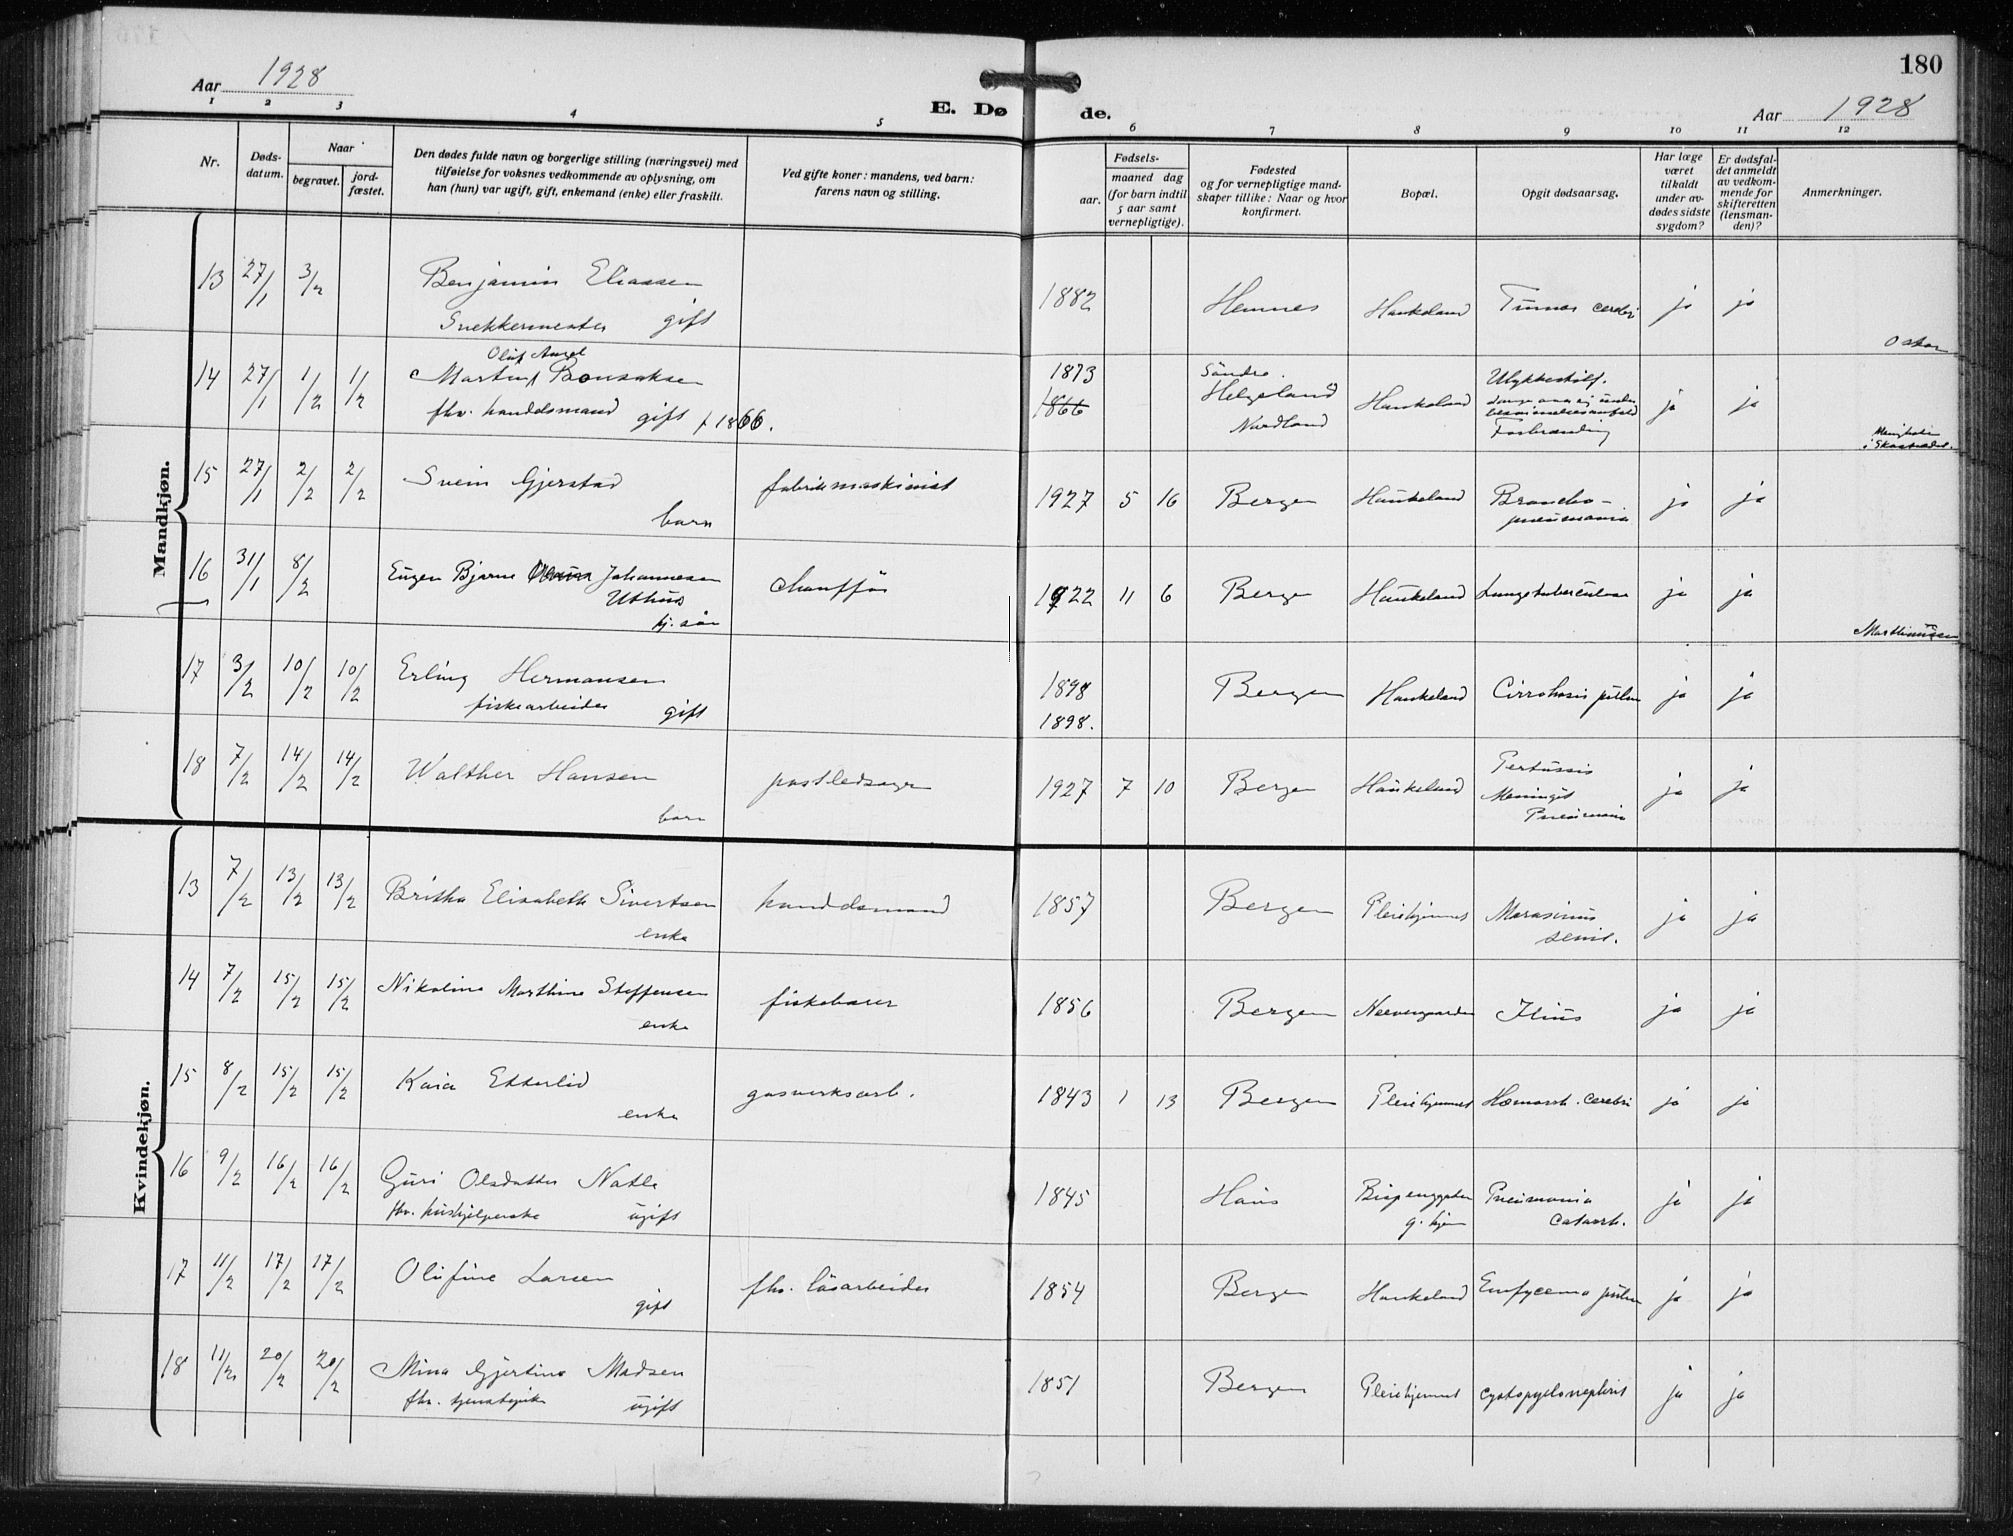 180
Aar 1928
E. Dø
de.
Aar 1928
1 2 3 4 5
6 7 8 9 10 11 12
Nr.
Døds-
datum.
Naar
begravet.
jord-
fæstet.
Den dødes fulde navn og borgerlige stilling (næringsvei) med
tilføielse for voksnes vedkommende av oplysning, om
han (hun) var ugift, gift, enkemand (enke) eller fraskilt.
Ved gifte koner: mandens, ved barn:
farens navn og stilling.
Fødsels-
aar.
maaned dag
(for barn indtil
5 aar samt
vernepligtige).
Fødested
og for vernepligtige mand-
skaper tillike: Naar og hvor
konfirmert.
Bopæl.
Opgit dødsaarsag.
Har læge
været
tilkaldt
under av-
dødes sidste
sygdom?
Er dødsfal-
det anmeldt
av vedkom-
mende for
skifteretten
(lensman-
den)?
Anmerkninger.
Mandkjøn.
13 27/1 3/2 Benjamin Eliassen 1882 Hemnes Haukeland Tumor cerebri ja ja
Snekkermester gift
Oskar
Oluf
14 27/1 1/2 1/2 Martin Bonsaksen 1873 Søndre Helgeland Haukeland ja ja
fhv. handelsmand gift f 1866. 1866 Nordland
Forbrænding
15 27/1 2/2 2/2 Svein Gjerstad fabrikmaskinist 1927 5 16 Bergen Haukeland Broncho-
pneumonia ja ja
barn
16 31/1 8/2 Eugen Bjarne Johannesen chauffør 1922 11 6 Bergen Haukeland Lungetuberculose ja ja
Uthus
Marthinussen
17 3/2 10/2 10/2 Erling Hermansen 1898 Bergen Haukeland Cirrhosis pulm ja ja
fiskearbeider gift 1898.
18 7/2 14/2 14/2 Walther Hansen postledsager 1927 7 10 Bergen Haukeland Pertussis
Meningit
Pneumonia ja ja
barn
Kvindekjøn.
13 7/2 13/2 13/2 Britha Elisabeth Sivertsen handelsmand 1857 Bergen Pleiehjemmet Marasmus
senil. ja ja
enke
14 7/2 15/2 15/2 Nikoline Marthine Steffensen fiskebærer 1856 Bergen Ileus ja ja
enke
15 8/2 15/2 15/2 Kaia Etterlid gasverksarb. 1843 1 13 Bergen Pleiehjemmet Hæmorrh. cerebri ja ja
enke
16 9/2 16/2 16/2 Guri Olsdatter Natle 1845 Haus Pneumonia
catarrh. ja ja
fhv. hushjelperske ugift
17 11/2 17/2 17/2 Olufine Larsen fhv. løsarbeider 1854 Bergen Haukeland Emfycema pulm ja ja
gift
18 11/2 20/2 20/2 Mina Gjertine Madsen 1851 Bergen Pleiehjemmet cystopyelonephrit ja ja
fhv. tjenestepike ugift